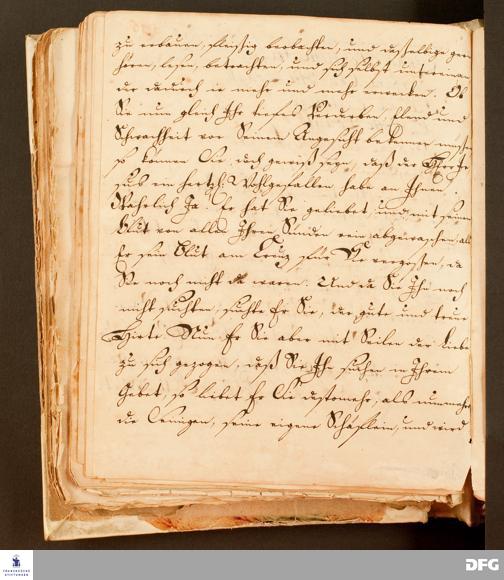 zu erbauen, fleißig beobachten, und dasselbige gern
hören, lesen, betrachten, und sich selbst untereinan
der dadurch ie mehr und mehr erwecken. Ob
Sie nun gleich Ihr tiefes Verderben, Elend und
Schwachheit vor Seinem Angesicht bekennen müssen
so können Sie doch gewiß seyn, daß der Herr Je
sus ein hertzl. Wohlgefallen habe an Ihnen.
Wahrlich Ja Er hat Sie geliebet, und mit seinem
Blut von allen Ihren Sünden rein abgewaschen, als
Er sein Blut am Creutz für Sie vergossen, da
Sie noch nicht waren. Und da Sie Ihn noch
nicht suchten, suchte Er Sie, der gute und treue
Hirte. Nun Er Sie aber mit Seilen der Liebe
zu sich gezogen, daß Sie Ihn suchen in Ihrem
Gebet, so liebet Er Sie destomehr, als nunmehr
die Seinigen, seine eigene Schäflein, und wird
FRANCKESCHE
STIFTUNGEN
DFG